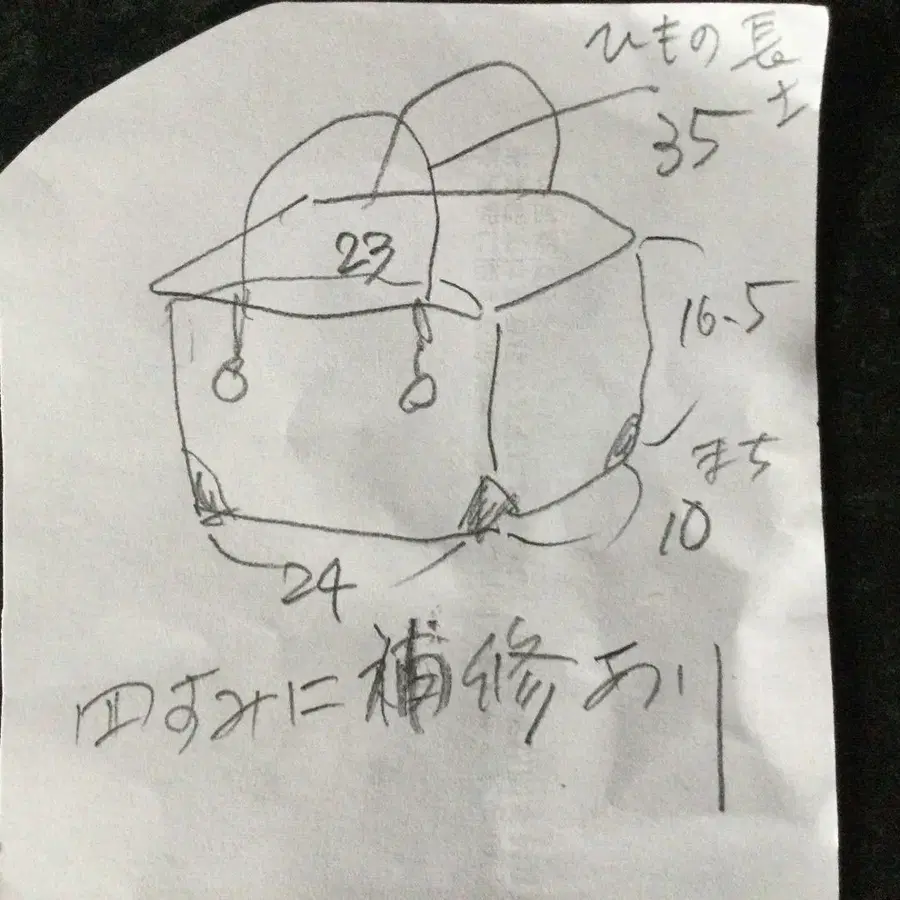 ひもの長さ
35
23
16.5
まち
10
24
四すみに補修あり